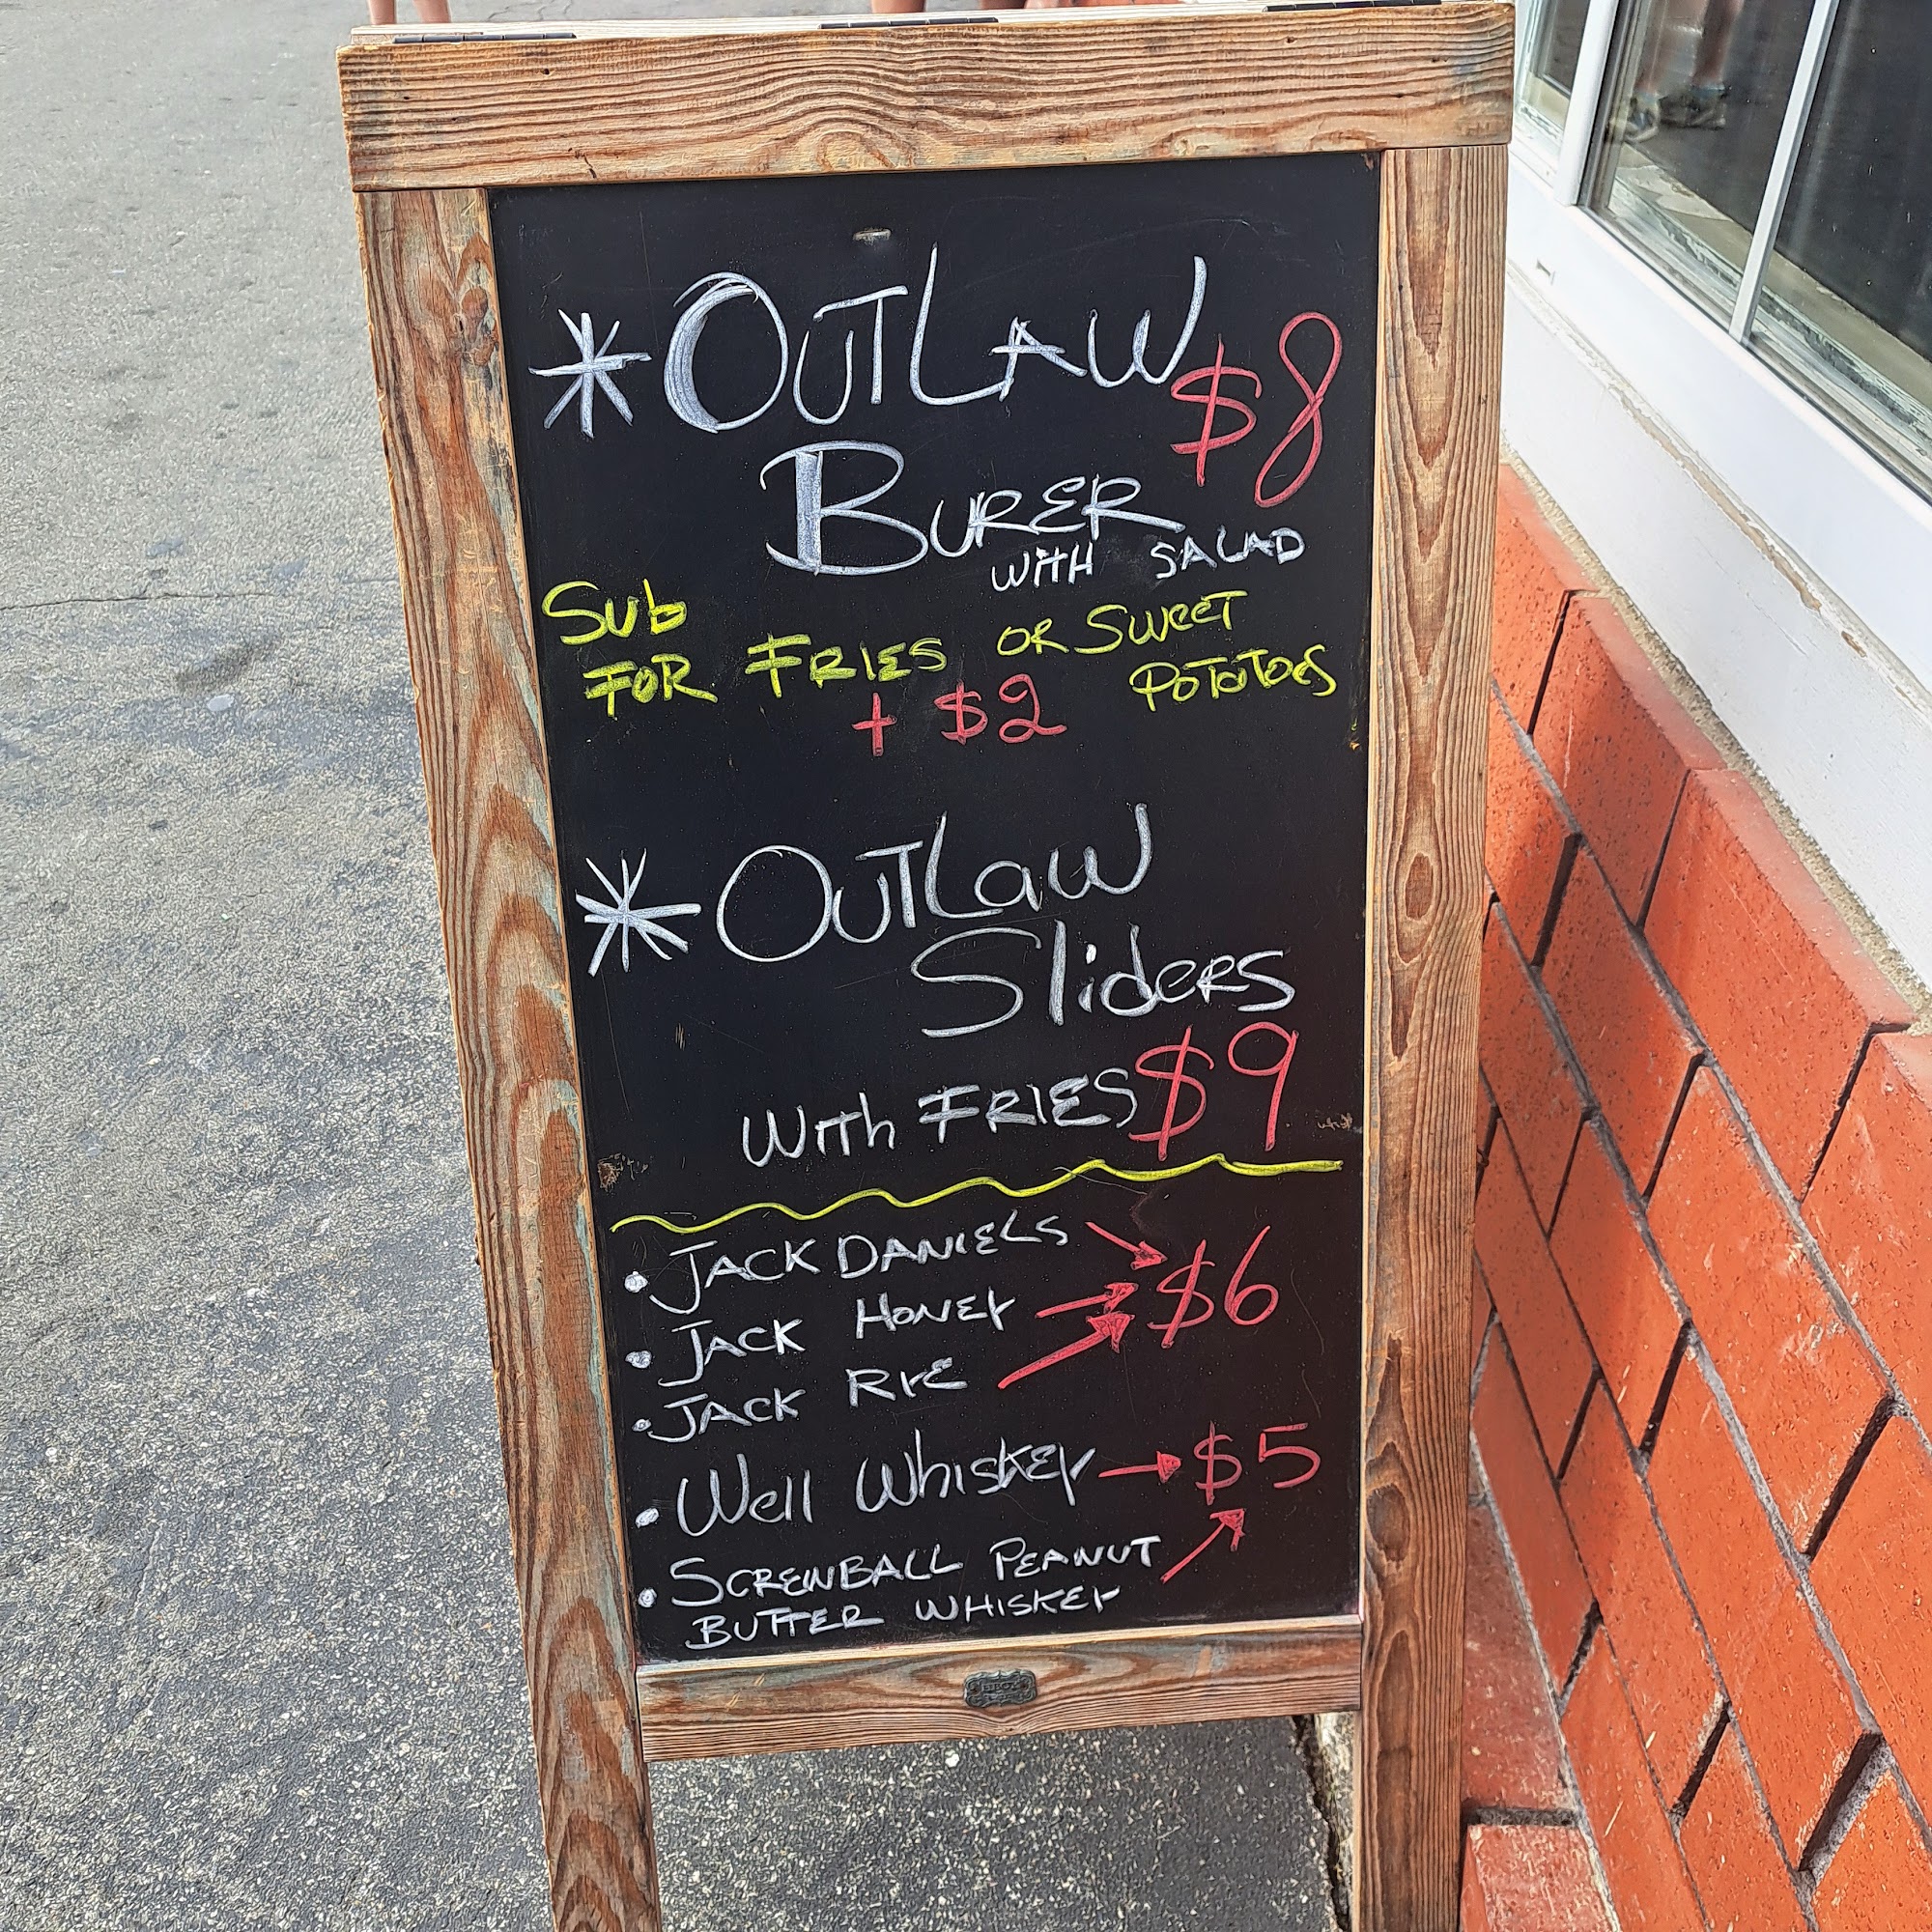 * OUTLAW $8
BURER
WITH SALAD
Sub
FOR FRIES OR SWEET
POTOTOES
+ $2
* OUTLaW
SlideRS
WITh FRIES $9
• JACK DANIELS
• JACK HONEY $6
• JACK RYE
• Well WhiSKEY $5
• SCREWBALL PEANUT
BUTTER WHISKEY